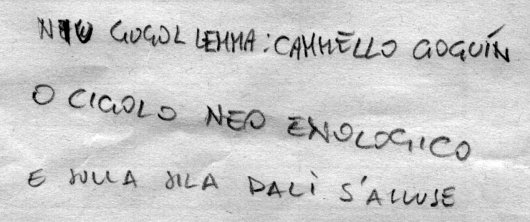 NIU GOGOL LEMMA: CAMMELLO GOGUÍN
O CIGOLO NEO ENOLOGICO
E SULLA SILA DALÌ S'ALLUSE